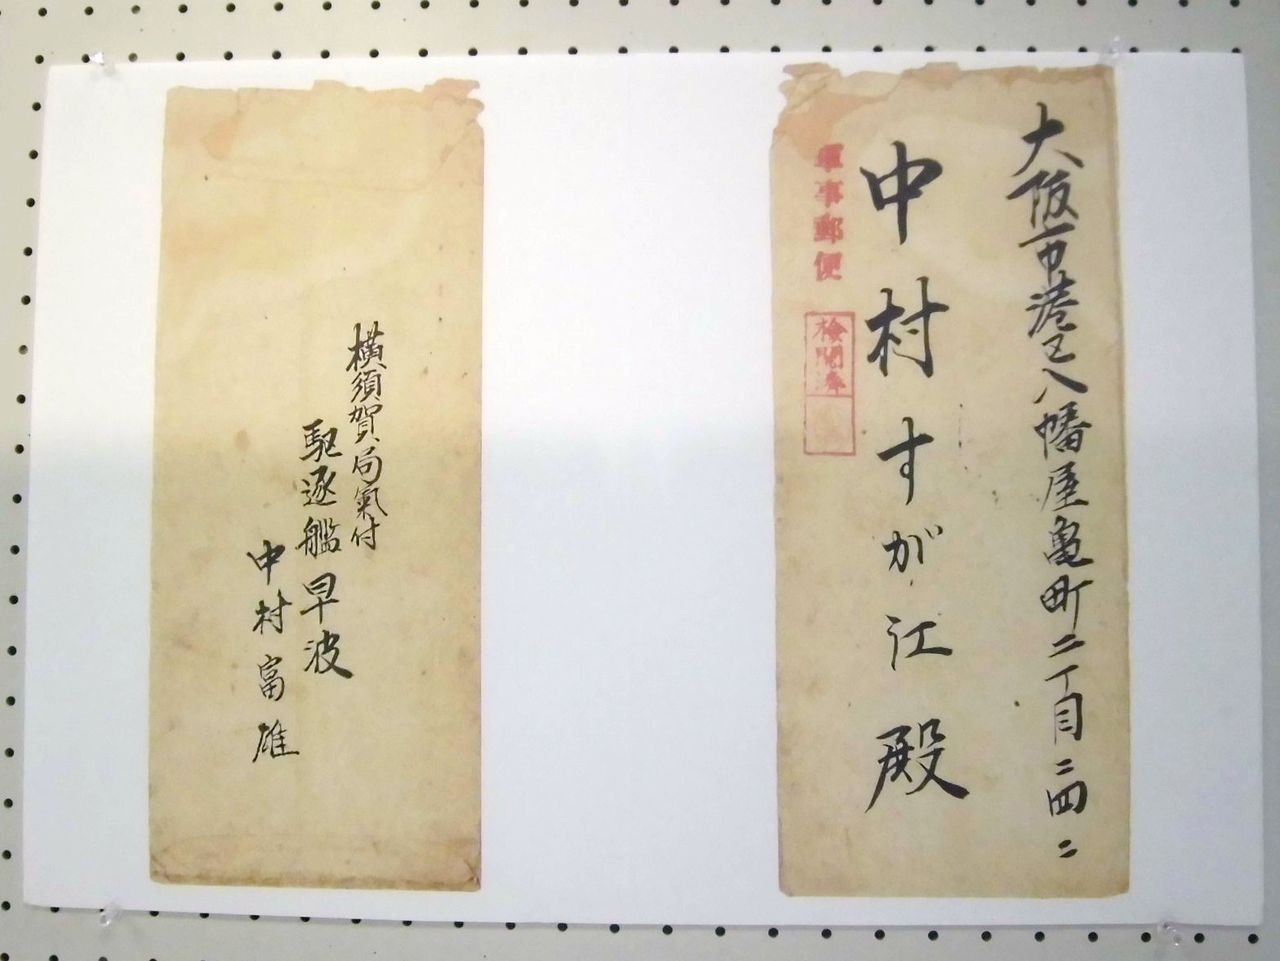 大阪市港区八幡屋亀町二丁目二四二
中村すが江殿
軍事郵便
検閲済
横須賀局氣付
駆逐艦早波
中村富雄